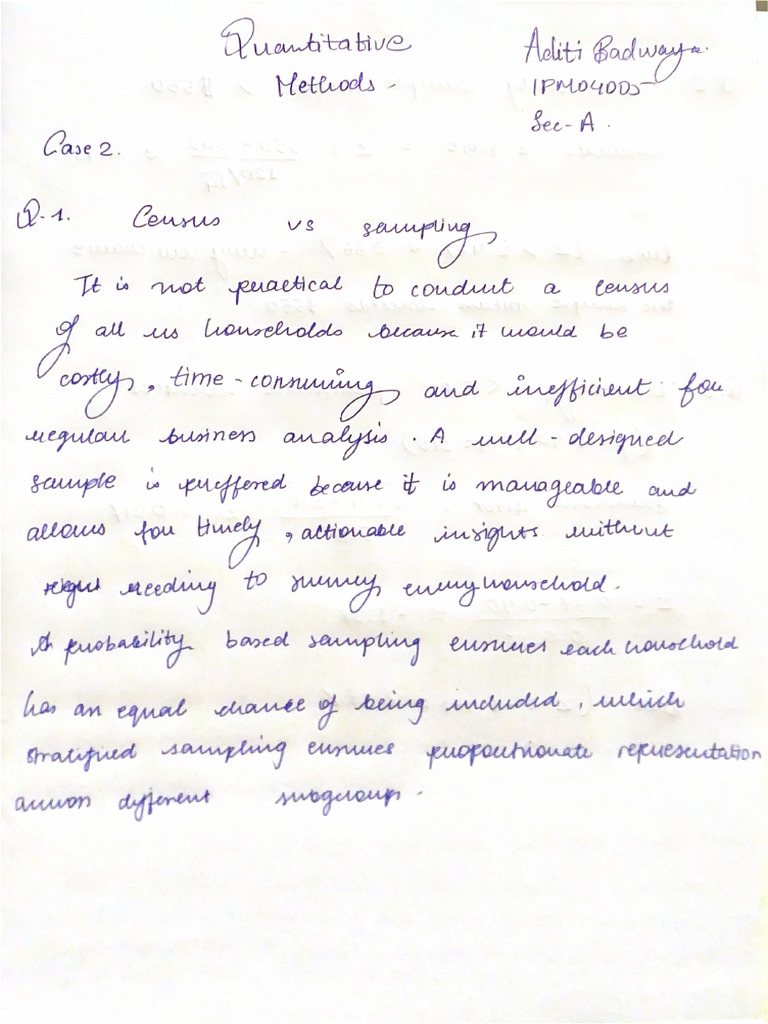 Quantitative
Methods -
Aditi Badwaya.
IPM04005
Sec-A.
Case 2.
Q-1. Census vs sampling
It is not practical to conduct a census
of all us households because it would be
costly, time-consuming and inefficient for
regular business analysis. A well-designed
sample is preffered because it is manageable and
allows for timely, actionable insights without
needing to survey every household.
A probability based sampling ensures each household
has an equal chance of being included, which
stratified sampling ensures proportionate representation
across different subgroups.